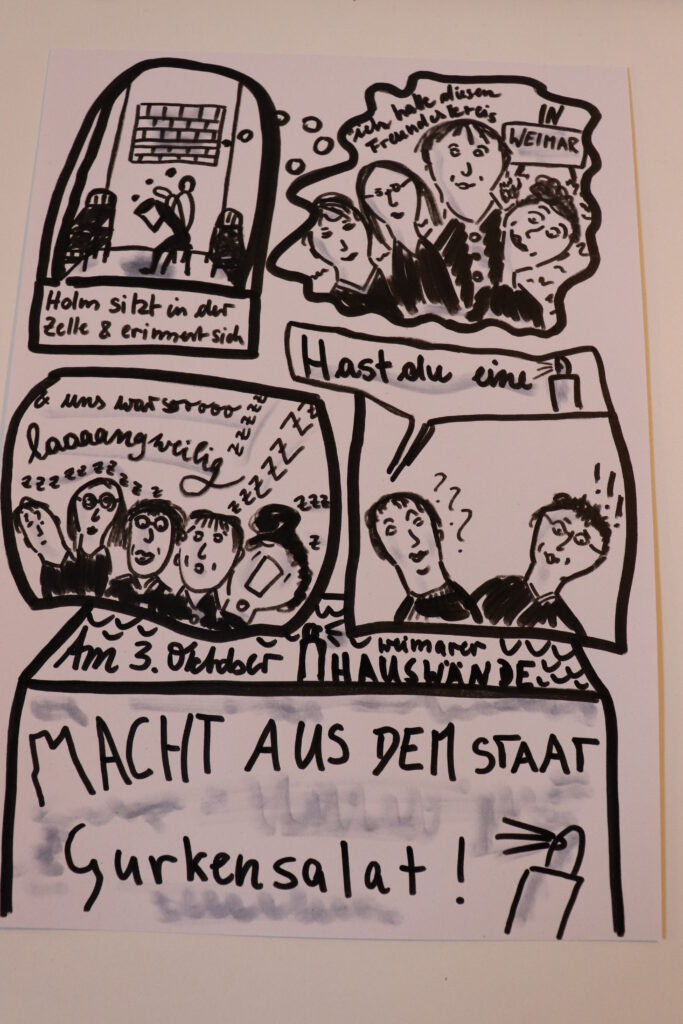 Holm sitzt in der
Zelle & erinnert sich
ich hatte diesen
Freundeskreis
IN
WEIMAR
& uns war sooooo
laaaangweilig
zzzzzzz
zzzzzz
zzz
z
Hast du eine
???
!!!
Am 3. Oktober
weimarer
HAUSWÄNDE
MACHT AUS DEM STAAT
Gurkensalat!